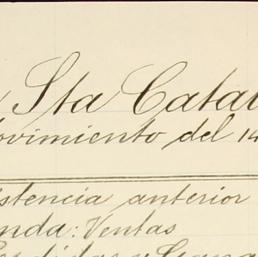 Sta Catal
ovimiento del 14
istencia anterior
nda: Ventas